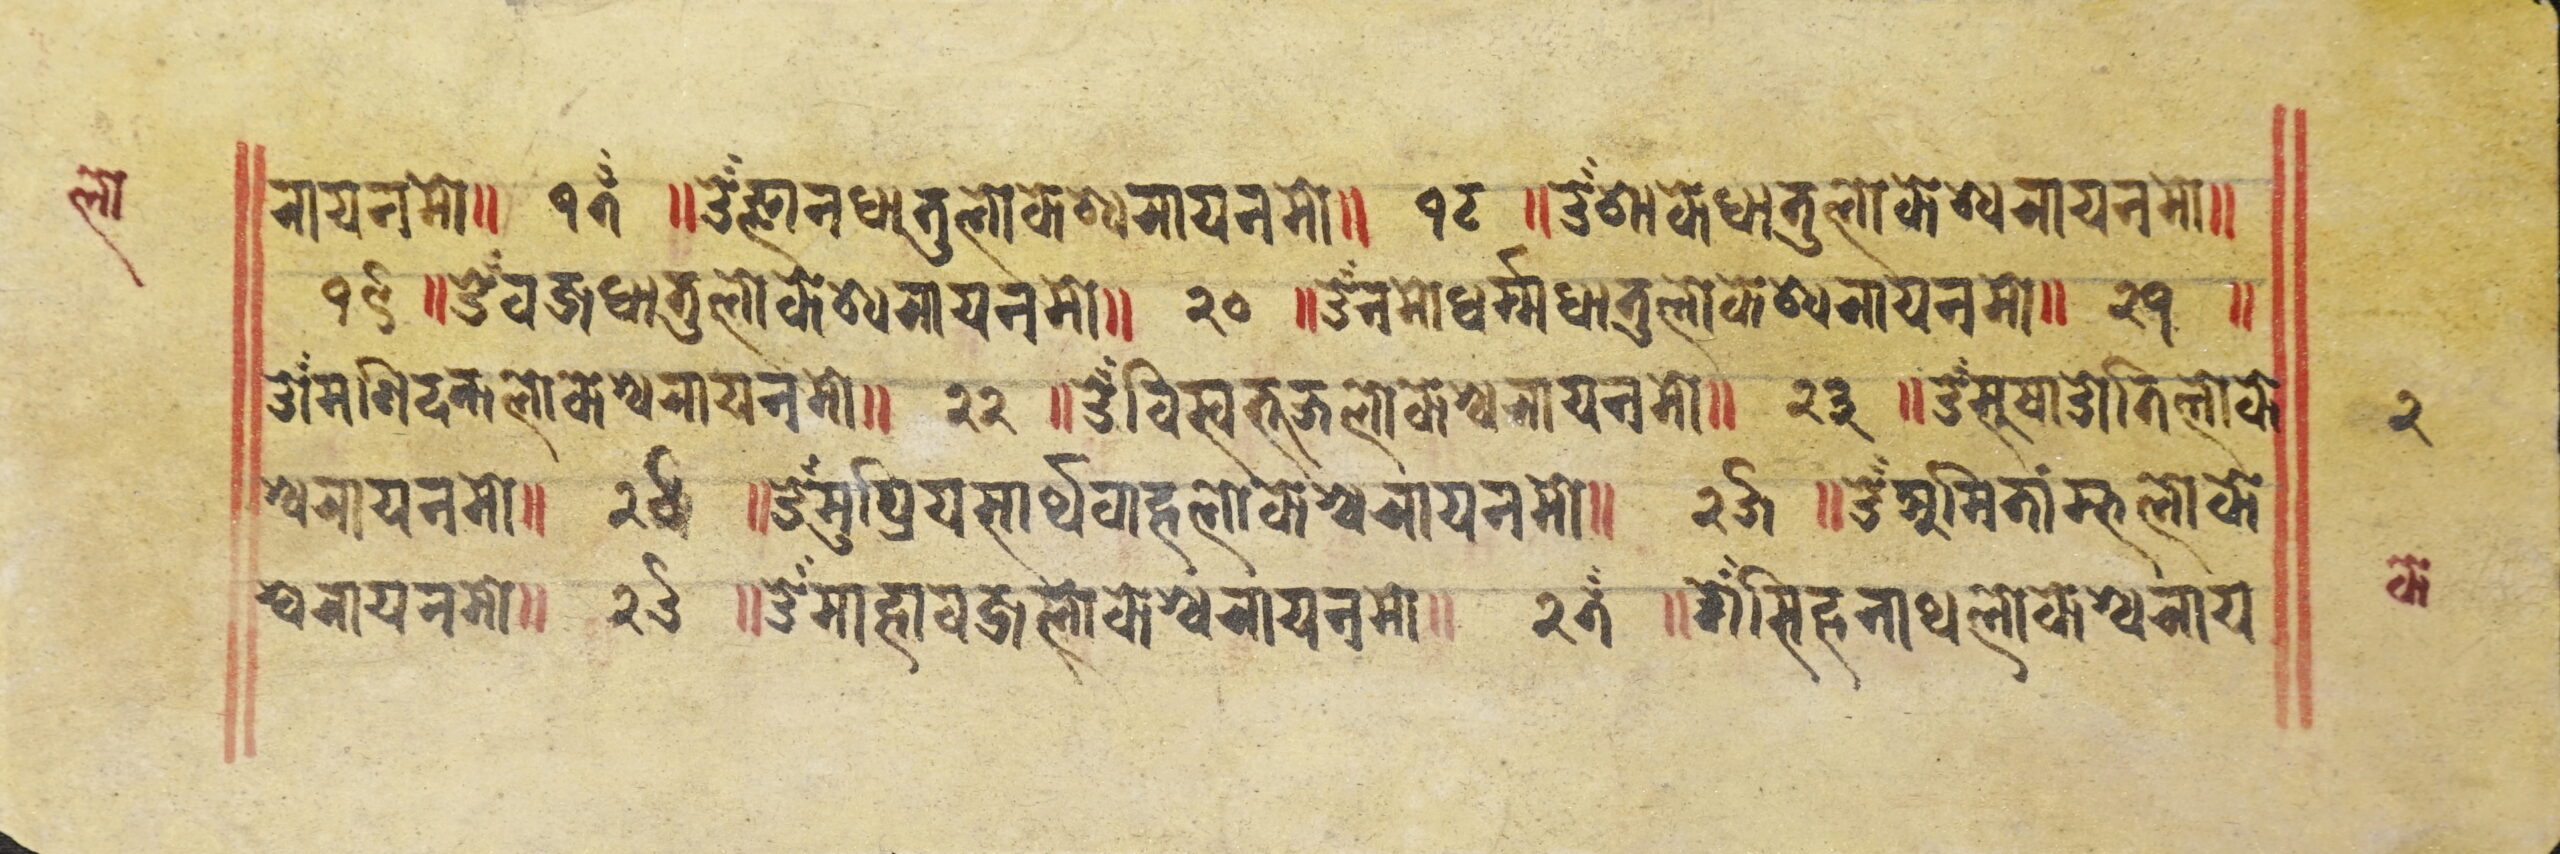 लो
रायनमो॥ १७ ॥ॐज्ञानधातुलोकेश्वरायनमो॥ १८ ॥ॐशाकेधातुलोकेश्वरायनमो॥
१९ ॥ॐवज्रधातुलोकेश्वरायनमो॥ २० ॥ॐनमोधर्म्मधातुलोकेश्वरायनमो॥ २१ ॥
ॐमनिदन्तलोकेश्वरायनमो॥ २२ ॥ॐविस्वभूजलोकेश्वरायनमो॥ २३ ॥ॐसूषाडोतिलोके
श्वरायनमो॥ २४ ॥ॐसुप्रियसार्थवाहलोकेश्वरायनमो॥ २५ ॥ॐअमितांम्हलोके
श्वरायनमो॥ २६ ॥ॐमाहावज्रलोकेश्वरायनमो॥ २७ ॥ॐसिहनाथलोकेश्वराय
२
के